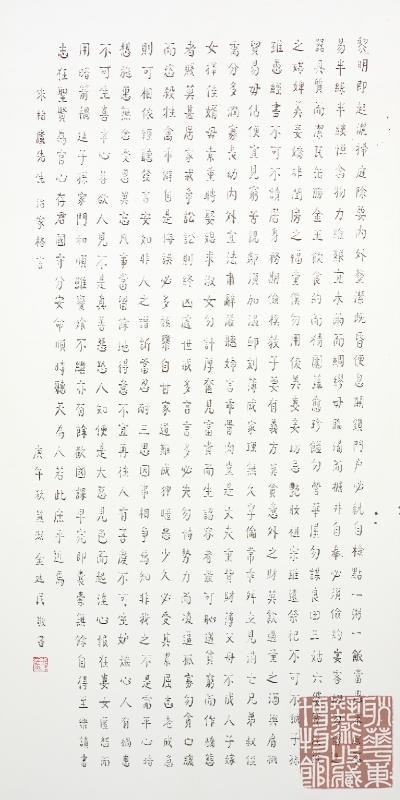 黎明即起灑掃庭除要內外整潔既昏便息關鎖門戶必親自檢點一粥一飯當思來處不
易半絲半縷恆念物力維艱宜未雨而綢繆毋臨渴而掘井自奉必須儉約宴客切勿流連
器具質而潔瓦缶勝金玉飲食約而精園蔬愈珍饈勿營華屋勿謀良田三姑六婆實淫盜
之媒婢美妾嬌非閨房之福童僕勿用俊美妻妾切忌艷妝祖宗雖遠祭祀不可不誠子孫
雖愚經書不可不讀居身務期儉樸教子要有義方莫貪意外之財莫飲過量之酒與肩挑
貿易毋佔便宜見窮苦親鄰須加溫卹刻薄成家理無久享倫常乖舛立見消亡兄弟叔侄
需分多潤寡長幼內外宜法肅辭嚴聽婦言乖骨肉豈是丈夫重貲財薄父母不成人子嫁
女擇佳婿毋索重聘娶媳求淑女勿計厚奩見富貴而生諂容者最可恥遇貧窮而作驕態
者賤莫甚居家戒爭訟訟則終凶處世戒多言言多必失勿恃勢力而凌逼孤寡勿貪口腹
而恣殺牲禽乖僻自是悔誤必多頹惰自甘家道難成狎暱惡少久必受其累屈志老成急
則可相依輕聽發言安知非人之譖訴當忍耐三思因事相爭焉知非我之不是需平心暗
想施惠無念受恩莫忘凡事當留餘地得意不宜再往人有喜慶不可生妒嫉心人有禍患
不可生喜幸心善欲人見不是真善惡恐人知便是大惡見色而起淫心報在妻女匿怨而
用暗箭禍延子孫家門和順雖饔飧不繼亦有餘歡國課早完即囊橐無餘自得至樂讀書
志在聖賢為官心存君國守分安命順時聽天為人若此庶乎近焉
朱柏廬先生治家格言 庚午秋 敬書